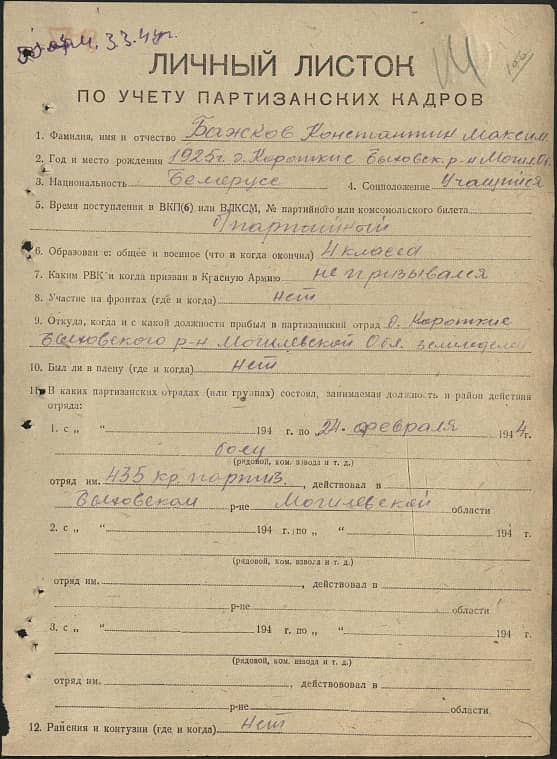 ЛИЧНЫЙ ЛИСТОК
ПО УЧЕТУ ПАРТИЗАНСКИХ КАДРОВ
1. Фамилия, имя и отчество Бажков Константин Максим.
2. Год и место рождения 1925 г. д. Короткие Быховск. р-н Могил.
3. Национальность Белорусс 4. Соцположение Учащийся
5. Время поступления в ВКП(б) или ВЛКСМ, № партийного или комсомольского билета
б/партийный
6. Образование: общее и военное (что и когда окончил) 4 класса
7. Каким РВК и когда призван в Красную Армию не призывался
8. Участие на фронтах (где и когда) нет
9. Откуда, когда и с какой должности прибыл в партизанкий отряд д. Короткие
Быховского р-н Могилевской Обл. земледел
10. Был ли в плену (где и когда) нет
11. В каких партизанских отрядах (или группах) состоял, занимаемая должность и район действия
отряда:
1. с „ “ 194 г. по 24 февраля 1944 г.
(рядовой, ком. взвода и т. д.)
отряд им. 435 кр. партиз. , действовал в
Быховском р-не Могилевской области
2. с „ “ 194 г. по „ “ 194 г.
(рядовой, ком. взвода и т. д.)
отряд им. , действовал в
р-не области
3. с „ “ 194 г. по „ “ 194 г.
(рядовой, ком. взвода и т. д.)
отряд им. , действововал в
р-не области
12. Ранения и контузии (где и когда) нет